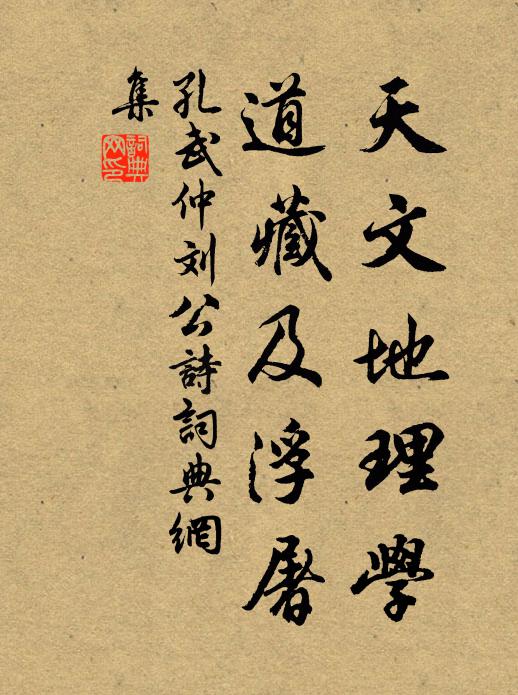 天文地理學
道藏及浮屠
孔武仲刘公詩詞典網
集
詞典網印